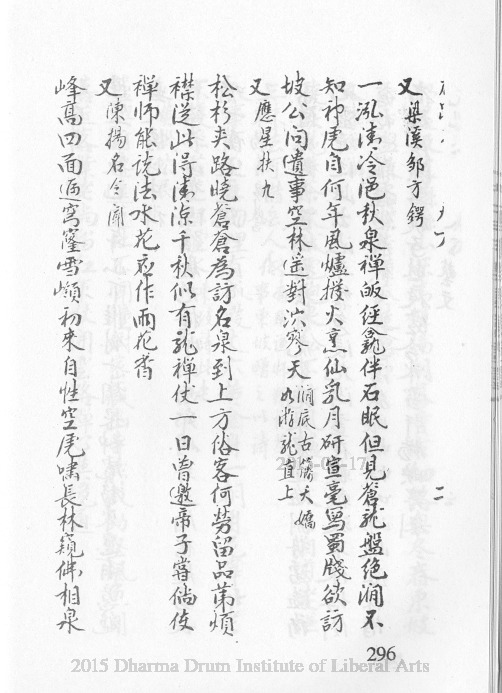 又 梁溪鄒方鍔
一泓清冷浥秋泉禪皈經龕伴石眠但見蒼龍盤絕澗不
知神虎自何年風爐撥火烹仙乳月研宣毫寫蜀牋欲訪
坡公問遺事空林遙對泬寥天 澗底古藤夭矯
如游龍直上
又 應星扶九
松杉夾路曉蒼蒼為訪名泉到上方俗客何勞留品第煩
襟從此得清涼千秋似有龍禪仗一日曾邀帝子嘗倘伎
禪師能說法水花應作雨花香
又 陳揚名令聞
峰高四面逼穹窿雪巘初來自性空虎嘯長林窺佛相泉
二
296
2015-04-17
2015 Dharma Drum Institute of Liberal Arts